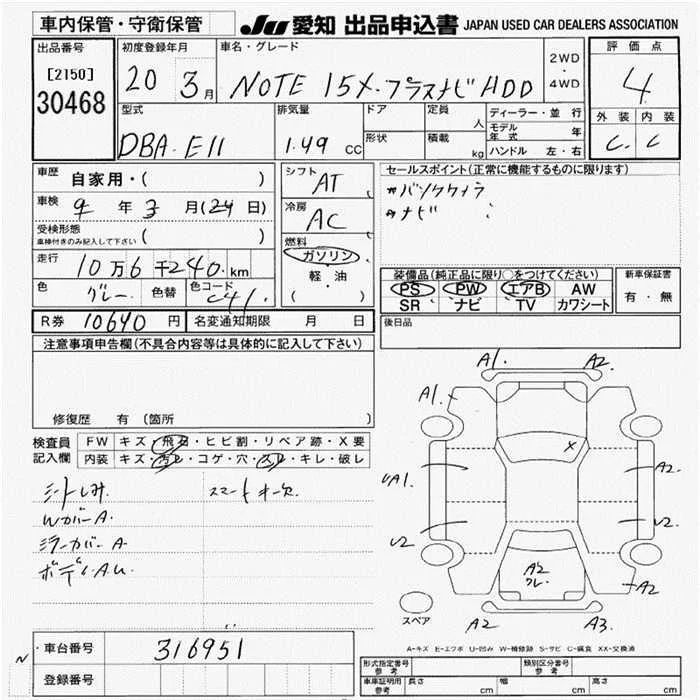 車内保管・守衛保管
JU 愛知 出品申込書 JAPAN USED CAR DEALERS ASSOCIATION
出品番号
[2150]
30468
初度登録年月
20 3月
車名・グレード
NOTE 15X・プラスナビ HDD
2WD
・
4WD
評価点
4
外装 内装
C C
型式
DBA-E11
排気量
1.49 CC
ドア
形状
定員 人
積載 kg
ディーラー・並行
モデル年式 年
ハンドル 左・右
車歴 自家用・( )
車検 9年3月(24日)
受検形態
車検付きのみ記入して下さい ( )
走行 10万6千240km
色 グレー 色替 色コード C41
シフト AT
冷房 AC
燃料
ガソリン
軽・油
( )
セールスポイント(正常に機能するものに限ります)
バックカメラ
ナビ
装備品(純正品に限り○をつけてください)
PS PW エアB AW
SR ナビ TV カワシート
新車保証書
有・無
R券 10640円 名変通知期限 月 日
後日品
注意事項申告欄(不具合内容等は具体的に記入して下さい)
修復歴 有(箇所 )
検査員記入欄
FW キズ・飛石・ヒビ割・リペア跡・X要
内装 キズ・汚レ・コゲ・穴・スレ・キレ・破レ
シートしみ スマートキー欠
WカバーA.
ミラーカバーA
ボディAU.
A1. A2.
A1.
X
UA1. A2.
U2 U2
A2
A2
スペア A2 A3.
A-キズ E-エクボ U-凹み W-補修跡 S-サビ C-腐食 XX-交換済
車台番号 316951
登録番号
形式指定番号 参考 類別区分番号 参考
車庫証明用 参考 長さ cm 幅 cm 高さ cm